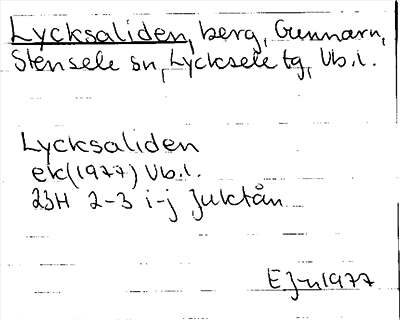 Lycksaliden, berg, Gunnarn,
Stensele sn, Lycksele tg, Vb.l.
Lycksaliden
ek(1977) Vb.l.
23H 2-3 i-j Juktån
EJn1977